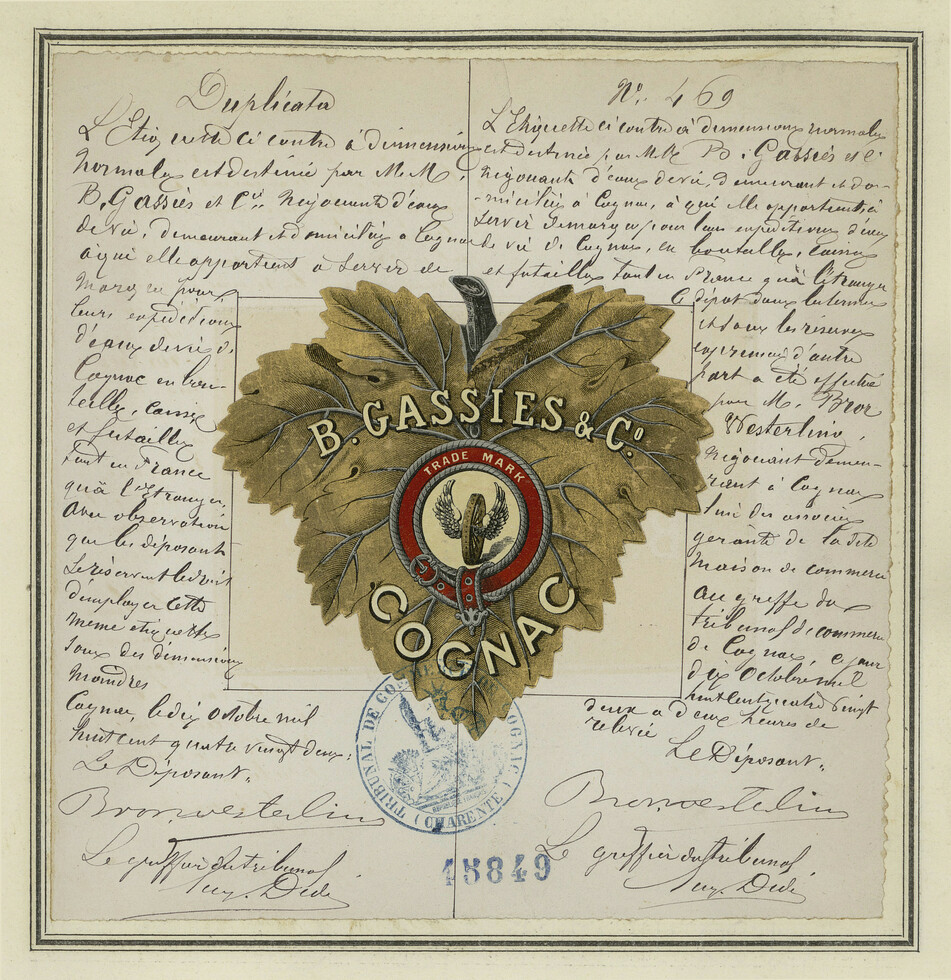 Duplicata
L'Etiquette ci contre à dimensions
normales est destiné par M.M.
B. Gassiès et Cie. Négociants d'eaux
de vie, demeurant et domiciliés à Cognac
a qui elle appartient à servir de
Marque pour
leurs expéditions
d'eaux de vie de
Cognac en bou-
teilles, caisses
et futailles
tant en France
qu'à l'Etranger,
Avec observation
que les déposants
se réservent le droit
d'employer cette
même etiquette
sous des dimensions
moindres
Cognac, le dix Octobre mil
huit cent quatre vingt deux.
Le Déposant,
Bror Westerling
Le greffier du tribunal
No. 469
L'Etiquette ci contre à dimensions normales
est destinée par M.M. B. Gassiès et Cie
Négociants d'eaux de vie, demeurant et do-
miciliés à Cognac, à qui elle appartient, à
servir de marque pour leurs expéditions d'eaux
de vie de Cognac, en bouteilles, caisses
et futailles tant en France qu'à l'étranger
Le dépôt dans les termes
et sous les réserves
exprimées d'autre
part a été effectué
par M. Bror
Westerling,
Négociant demeu-
rant à Cognac
l'un des associés
gérants de la dite
Maison de commerce
au greffe du
tribunal de commerce
de Cognac, ce jour
dix Octobre mil
huit cent quatre vingt
deux a deux heures de
relevée
Le Déposant,
Bror Westerling
Le greffier du tribunal
B. GASSIES & Co.
TRADE MARK
COGNAC
TRIBUNAL DE COMMERCE COGNAC
(CHARENTE)
15849